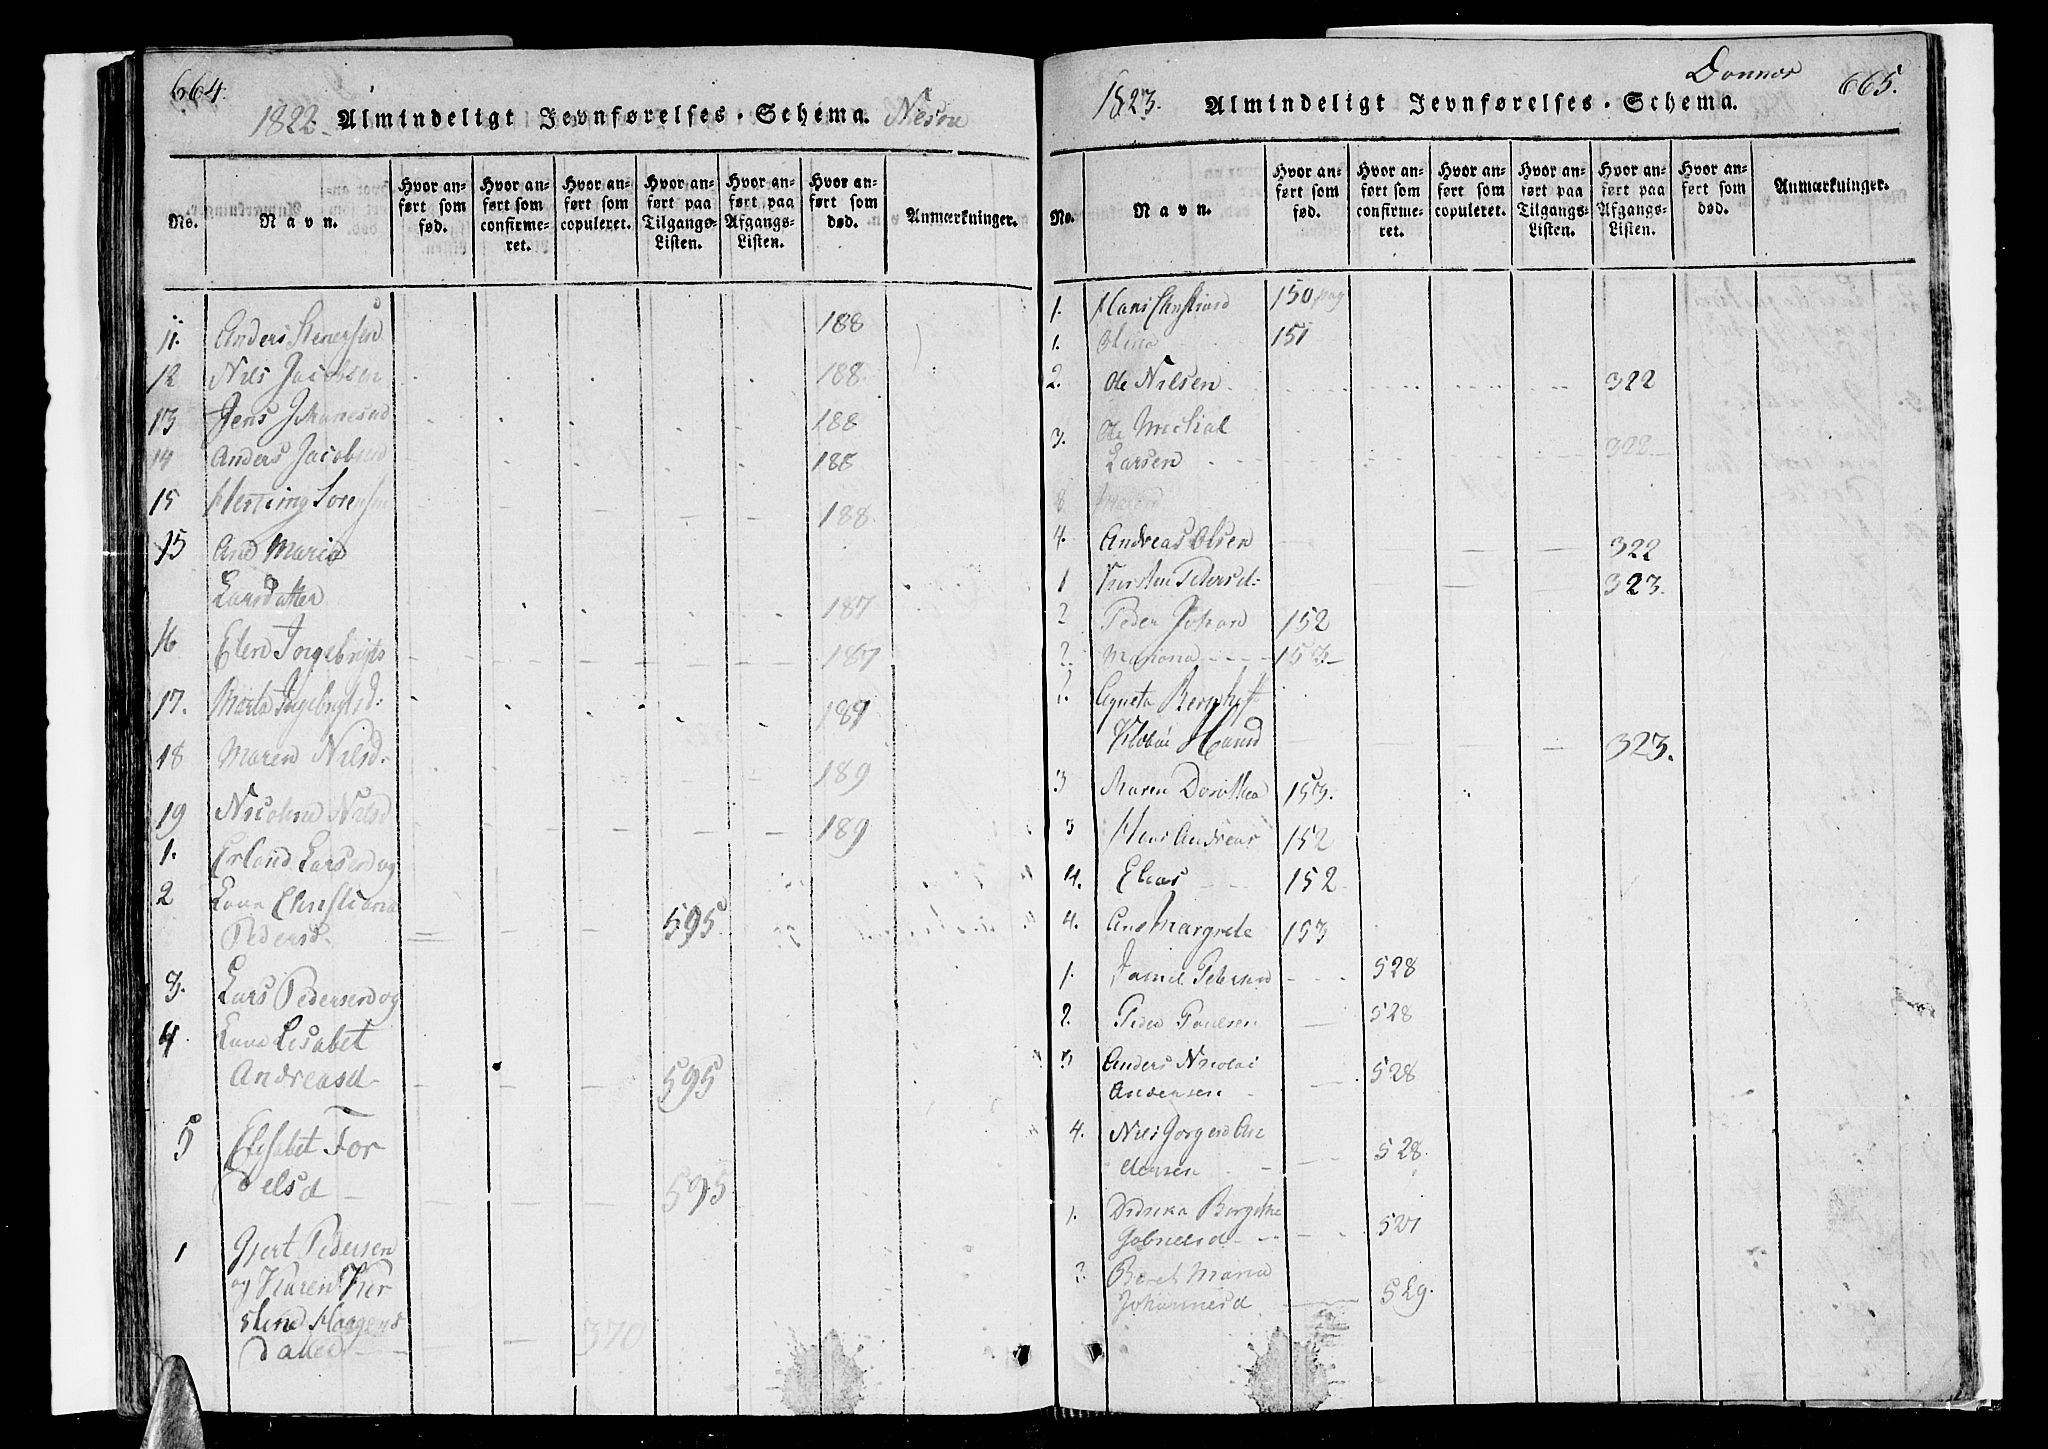 664.
1822. Almindeligt Jevnførelses-Schema. Nesøe
No.
Navn.
Hvor anført som fød.
Hvor anført som confirmeret.
Hvor anført som copuleret.
Hvor anført paa Tilgangs-Listen.
Hvor anført paa Afgangs-Listen.
Hvor anført som død.
Anmærkninger.
11. Anders Stenersen 188
12 Nils Jacobsen 188.
13 Jens Johanesen 188
14 Anders Jacobsen 188
15 Henning Sorensen 188.
15 Ane Maria
Larsdatter 187
16 Elen Ingebrigts 187
17. Marta Ingebrigtsd: 189
18 Maren Nilsd. 189
19 Nicoline Nilsd 189
1. Erland Larsen og
2 Christiana
Pedersd. 595
3. Lars Pedersen og
4 Lisabet
Andreasd. 595
5 Elisabet Tor
delsd 595
1 Gjert Pedersen
og Karen Kir
stine Haagens
datter 370
Dønnes 665.
1823. Almindeligt Jevnførelses-Schema.
No.
Navn.
Hvor anført som fød.
Hvor anført som confirmeret.
Hvor anført som copuleret.
Hvor anført paa Tilgangs-Listen.
Hvor anført paa Afgangs-Listen.
Hvor anført som død.
Anmærkninger.
1. Hans Christian 150 pag
1. Olina 151
2. Ole Nilsen 322
3. Ole Michal
Larsen 322
8 Maren
4. Andreas Olsen 322
1 Kirsten Petersd: 323.
2 Peder Johan 152
2. Mariana 153
2. Agneta Bernhoft
Hansd 323.
3 Maren Dorothea 153.
3 Hans Andreas 152
4. Elias 152
4. Ane Margrete 153
1. Daniel Petersen 528
2. Peder Poulsen 528
3 Anders Nicolai
Andersen 528
4. Nils Jørgen An
dersen 528.
1. Didrika Borgitte
Gabrielsd 527
2. Beret Maria
Johannesd 529.